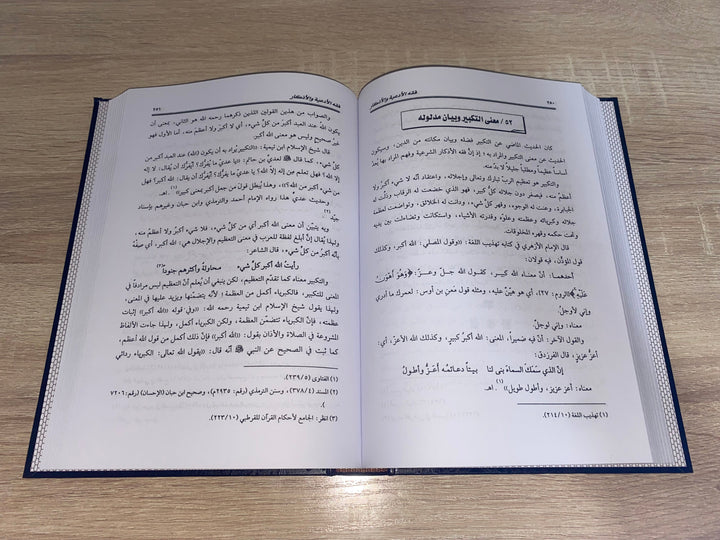 ٢٥٠
فقه الأدعية والأذكار
٥٢/ معنى التكبير وبيان مدلوله
كان الحديث الماضي عن التكبير فضله وبيان مكانته من الدين، وسيكون
الحديث عن معنى التكبير والمراد به؛ إذ إنَّ فقه الأذكار الشرعية وفهم المراد بها يُعدُّ
أساساً عظيماً ومطلباً جليلاً لا بدَّ منه.
والتكبير هو تعظيم الربِّ تبارك وتعالى وإجلاله، واعتقاد أنَّه لا شيء أكبرُ ولا
أعظمُ منه، فيصغر دون جلاله كلُّ كبير، فهو الذي خضعت له الرقاب وذلَّت له
الجبابرة، وعنت له الوجوه، وقهر كلَّ شيء، ودانت له الخلائق، وتواضعت لعظمة
جلاله وكبريائه وعظمته وعلوِّه وقدرته الأشياء، واستكانت وتضاءلت بين يديه
وتحت حكمه وقهره المخلوقات.
قال الإمام الأزهري في كتابه تهذيب اللغة: «وقول المصلي: الله أكبر، وكذلك
قول المؤذّن، فيه قولان:
أحدهما: أنَّ معناه الله كبير، كقول الله جلَّ وعزَّ: ﴿وَهُوَ أَهْوَنُ
عَلَيْهِ﴾[الروم: ٢٧]، أي هو هيِّنٌ عليه، ومثله قول مَعنِ بن أوس: لعمرك ما أدري
وإني لأوجلُ.
معناه: وإني لوجلٌ.
والقول الآخر: أنَّ فيه ضميراً، المعنى: الله أكبرُ كبيرٍ، وكذلك الله الأعزّ، أي:
أعزُّ عزيزٍ، قال الفرزدق:
إنَّ الذي سَمَكَ السماءَ بنى لنا بيتاً دعائمُه أعَزُّ وأطولُ
معناه: أعز عزيز، وأطول طويل»(١). اهـ.
(١) تهذيب اللغة (٢١٤/١٠).
فقه الأدعية والأذكار
٢٥١
والصواب من هذين القولين اللذين ذكرهما رحمه الله هو الثاني، بمعنى أن
يكون اللهُ عند العبد أكبرَ من كلِّ شيء، أي لا أكبرَ ولا أعظمَ منه، أما الأول فهو
غير صحيح وليس هو معنى الله أكبر.
قال شيخ الإسلام ابن تيمية: «التكبير يُراد به أن يكون (الله) عند العبد أكبر من
كلِّ شيء، كما قال ﷺ لعديِّ بن حاتم: «يا عديُّ ما يُفرُّك؟ أيُفرُّك أن يُقال: لا إله
إلاَّ الله؟ فهل تعلم من إله إلاَّ الله؟ يا عديُّ ما يُفرُّك؟ أيُفرُّك أن يُقال: الله أكبر؟ فهل
من شيء أكبر من الله؟»، وهذا يُبطل قولَ من جعل أكبر بمعنى كبير»(١). اهـ.
وحديث عدي هذا رواه الإمام أحمد والترمذي وابن حبان وغيرهم بإسناد
جيِّد(٢).
وبه يتبيَّن أن معنى الله أكبر أي من كلِّ شيء، فلا شيءَ أكبرُ ولا أعظمُ منه،
ولهذا يُقال إنَّ أبلغ لفظة للعرب في معنى التعظيم والإجلال هي: الله أكبر، أي صِفْهُ
بأنَّه أكبرُ من كلِّ شيء، قال الشاعر:
رأيتُ اللهَ أكبرَ كلِّ شيء محاولةً وأكثرهم جنوداً(٣)
والتكبير معناه كما تقدَّم التعظيم، لكن ينبغي أن يُعلم أنَّ التعظيم ليس مرادفاً في
المعنى للتكبير، فالكبرياء أكمل من العظمة؛ لأنَّه يتضمَّنها ويزيد عليها في المعنى،
ولهذا يقول شيخ الإسلام ابن تيمية رحمه الله: «وفي قوله «الله أكبر» إثبات
عظمته، فإنَّ الكبرياء تتضمَّن العظمة، ولكن الكبرياء أكمل، ولهذا جاءت الألفاظ
المشروعة في الصلاة والأذان بقول: «الله أكبر» فإنَّ ذلك أكمل من قول الله أعظم،
كما ثبت في الصحيح عن النبي ﷺ أنَّه قال: «يقول الله تعالى: الكبرياء ردائي
(١) الفتاوى (٢٣٩/٥).
(٢) المسند (٣٧٨/٤)، وسنن الترمذي (رقم: ٢٩٣٥م)، وصحيح ابن حبان (الإحسان) (رقم:٧٢٠٦
).
(٣) انظر: الجامع لأحكام القرآن للقرطبي (٢٢٣/١٠).